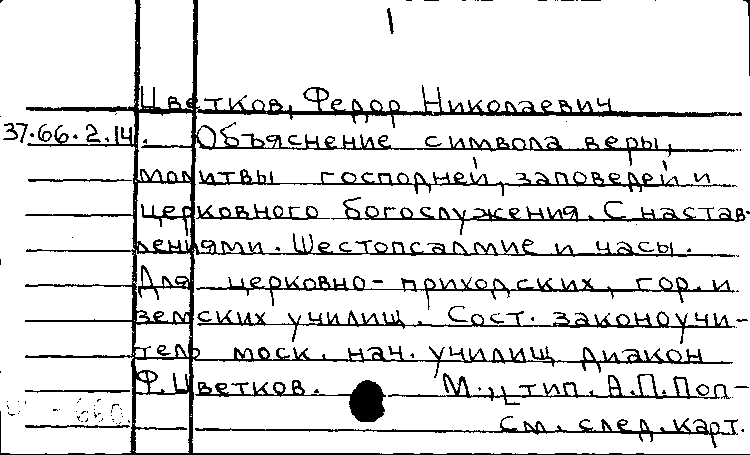 1
Цветков, Федор Николаевич
37.66.2.14. Объяснение символа веры,
молитвы господней, заповедей и
церковного богослужения. С настав-
лениями. Шестопсалмие и часы.
Для церковно-приходских, гор. и
земских училищ. Сост. законоучи-
тель моск. нач. училищ диакон
Ф. Цветков. М., тип. А.П. Поп-
660
см. след. карт.